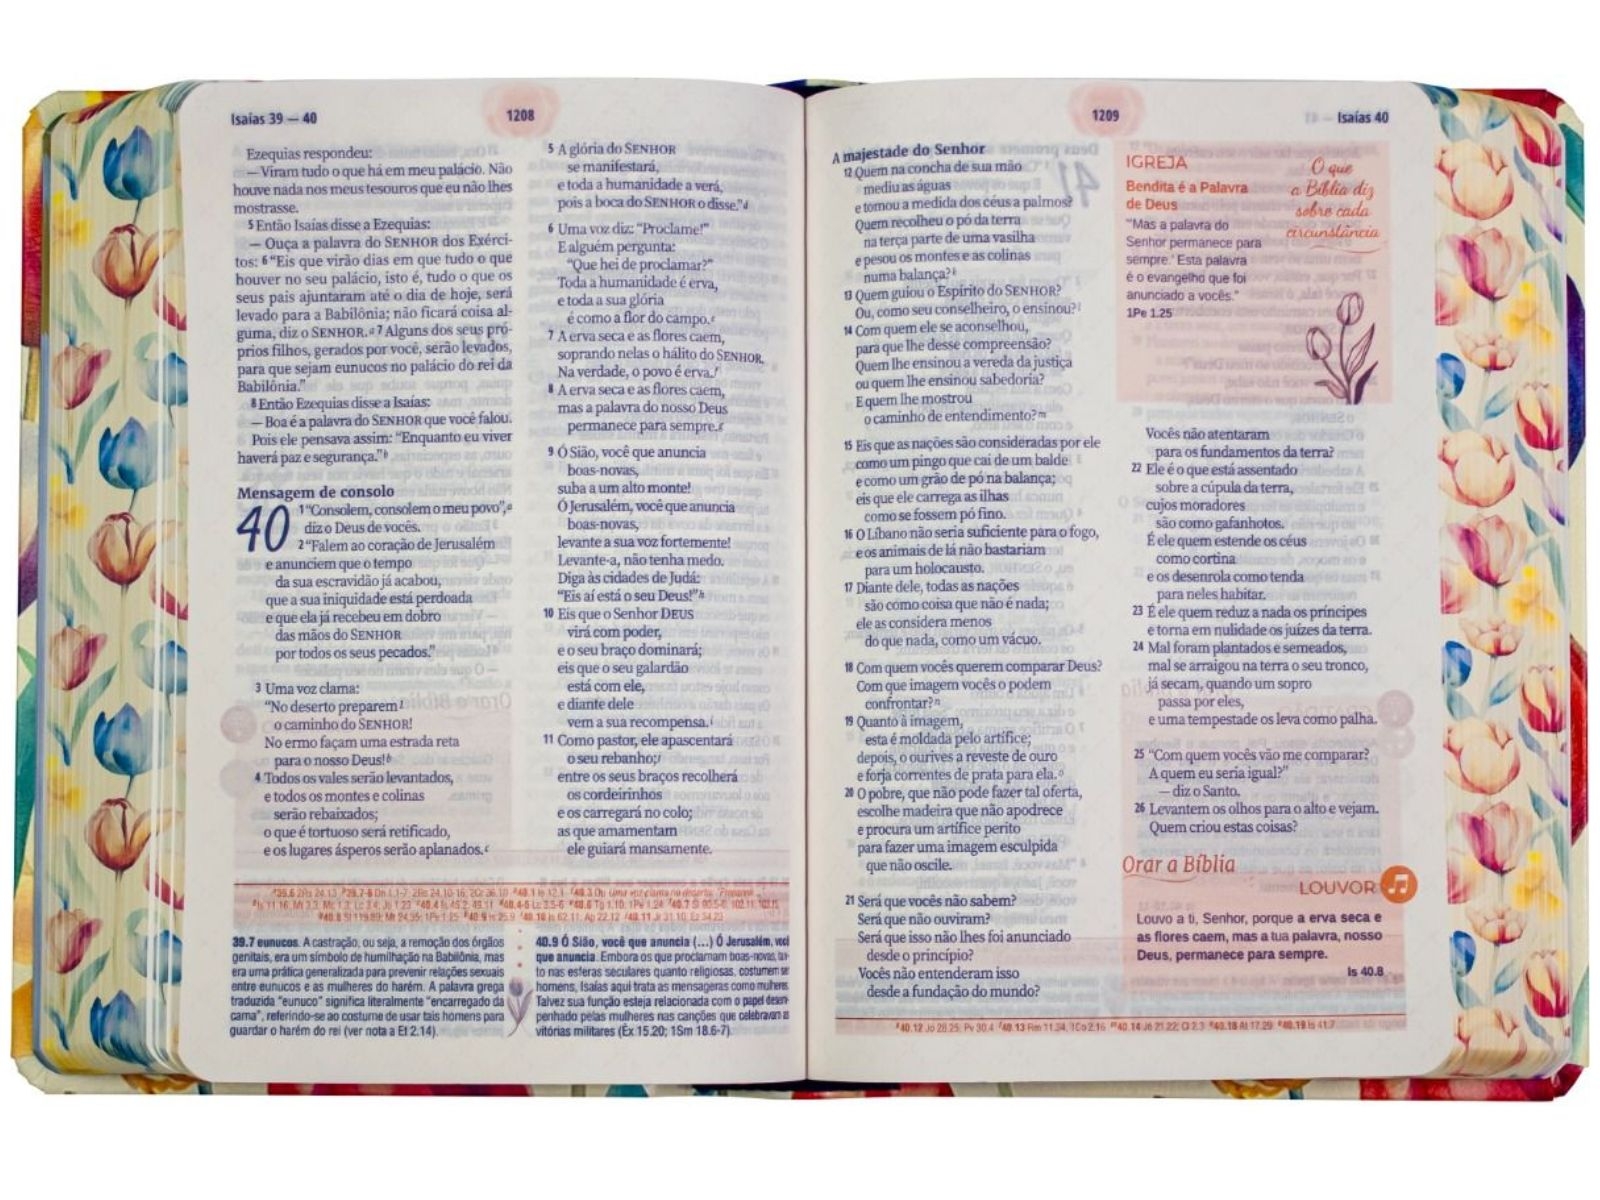 Isaías 39 — 40
1208
Ezequias respondeu:
— Viram tudo o que há em meu palácio. Não
houve nada nos meus tesouros que eu não lhes
mostrasse.
5 Então Isaías disse a Ezequias:
— Ouça a palavra do SENHOR dos Exérci-
tos: 6 “Eis que virão dias em que tudo o que
houver no seu palácio, isto é, tudo o que os
seus pais ajuntaram até o dia de hoje, será
levado para a Babilônia; não ficará coisa al-
guma, diz o SENHOR. a 7 Alguns dos seus pró-
prios filhos, gerados por você, serão levados,
para que sejam eunucos no palácio do rei da
Babilônia.”
8 Então Ezequias disse a Isaías:
— Boa é a palavra do SENHOR que você falou.
Pois ele pensava assim: “Enquanto eu viver
haverá paz e segurança.” b
Mensagem de consolo
40 1 “Consolem, consolem o meu povo”, a
diz o Deus de vocês.
2 “Falem ao coração de Jerusalém
e anunciem que o tempo
da sua escravidão já acabou,
que a sua iniquidade está perdoada
e que ela já recebeu em dobro
das mãos do SENHOR
por todos os seus pecados.”
3 Uma voz clama:
“No deserto preparem 1
o caminho do SENHOR!
No ermo façam uma estrada reta
para o nosso Deus! b
4 Todos os vales serão levantados,
e todos os montes e colinas
serão rebaixados;
o que é tortuoso será retificado,
e os lugares ásperos serão aplanados. c
5 A glória do SENHOR
se manifestará,
e toda a humanidade a verá,
pois a boca do SENHOR o disse.” d
6 Uma voz diz: “Proclame!”
E alguém pergunta:
“Que hei de proclamar?”
Toda a humanidade é erva,
e toda a sua glória
é como a flor do campo. e
7 A erva seca e as flores caem,
soprando nelas o hálito do SENHOR.
Na verdade, o povo é erva. f
8 A erva seca e as flores caem,
mas a palavra do nosso Deus
permanece para sempre. g
9 Ó Sião, você que anuncia
boas-novas,
suba a um alto monte!
Ó Jerusalém, você que anuncia
boas-novas,
levante a sua voz fortemente!
Levante-a, não tenha medo.
Diga às cidades de Judá:
“Eis aí está o seu Deus!” h
10 Eis que o Senhor DEUS
virá com poder,
e o seu braço dominará;
eis que o seu galardão
está com ele,
e diante dele
vem a sua recompensa. i
11 Como pastor, ele apascentará
o seu rebanho; j
entre os seus braços recolherá
os cordeirinhos
e os carregará no colo;
as que amamentam
ele guiará mansamente.
39.7 eunucos. A castração, ou seja, a remoção dos órgãos
genitais, era um símbolo de humilhação na Babilônia, mas
era uma prática generalizada para prevenir relações sexuais
entre eunucos e as mulheres do harém. A palavra grega
traduzida “eunuco” significa literalmente “encarregado da
cama”, referindo-se ao costume de usar tais homens para
guardar o harém do rei (ver nota a Et 2.14).
40.9 Ó Sião, você que anuncia (...) Ó Jerusalém, você
que anuncia. Embora os que proclamam boas-novas, tan-
to nas esferas seculares quanto religiosas, costumem ser
homens, Isaías aqui trata as mensageras como mulheres.
Talvez sua função esteja relacionada com o papel desem-
penhado pelas mulheres nas canções que celebravam as
vitórias militares (Êx 15.20; 1Sm 18.6-7).
1209
Isaías 40
A majestade do Senhor
12 Quem na concha de sua mão
mediu as águas
e tomou a medida dos céus a palmos?
Quem recolheu o pó da terra
na terça parte de uma vasilha
e pesou os montes e as colinas
numa balança? k
13 Quem guiou o Espírito do SENHOR?
Ou, como seu conselheiro, o ensinou? l
14 Com quem ele se aconselhou,
para que lhe desse compreensão?
Quem lhe ensinou a vereda da justiça
ou quem lhe ensinou sabedoria?
E quem lhe mostrou
o caminho de entendimento? m
15 Eis que as nações são consideradas por ele
como um pingo que cai de um balde
e como um grão de pó na balança;
eis que ele carrega as ilhas
como se fossem pó fino.
16 O Líbano não seria suficiente para o fogo,
e os animais de lá não bastariam
para um holocausto.
17 Diante dele, todas as nações
são como coisa que não é nada;
ele as considera menos
do que nada, como um vácuo.
18 Com quem vocês querem comparar Deus?
Com que imagem vocês o podem
confrontar? n
19 Quanto à imagem,
esta é moldada pelo artífice;
depois, o ourives a reveste de ouro
e forja correntes de prata para ela. o
20 O pobre, que não pode fazer tal oferta,
escolhe madeira que não apodrece
e procura um artífice perito
para fazer uma imagem esculpida
que não oscile.
21 Será que vocês não sabem?
Será que não ouviram?
Será que isso não lhes foi anunciado
desde o princípio?
Vocês não entenderam isso
desde a fundação do mundo?
IGREJA
Bendita é a Palavra
de Deus
“‘Mas a palavra do
Senhor permanece para
sempre.’ Esta palavra
é o evangelho que foi
anunciado a vocês.”
1Pe 1.25
O que
a Bíblia diz
sobre cada
circunstância
Vocês não atentaram
para os fundamentos da terra?
22 Ele é o que está assentado
sobre a cúpula da terra,
cujos moradores
são como gafanhotos.
É ele quem estende os céus
como cortina
e os desenrola como tenda
para neles habitar.
23 É ele quem reduz a nada os príncipes
e torna em nulidade os juízes da terra.
24 Mal foram plantados e semeados,
mal se arraigou na terra o seu tronco,
já secam, quando um sopro
passa por eles,
e uma tempestade os leva como palha.
25 “Com quem vocês vão me comparar?
A quem eu seria igual?”
— diz o Santo.
26 Levantem os olhos para o alto e vejam.
Quem criou estas coisas?
Orar a Bíblia
LOUVOR
Louvo a ti, Senhor, porque a erva seca e
as flores caem, mas a tua palavra, nosso
Deus, permanece para sempre.
Is 40.8